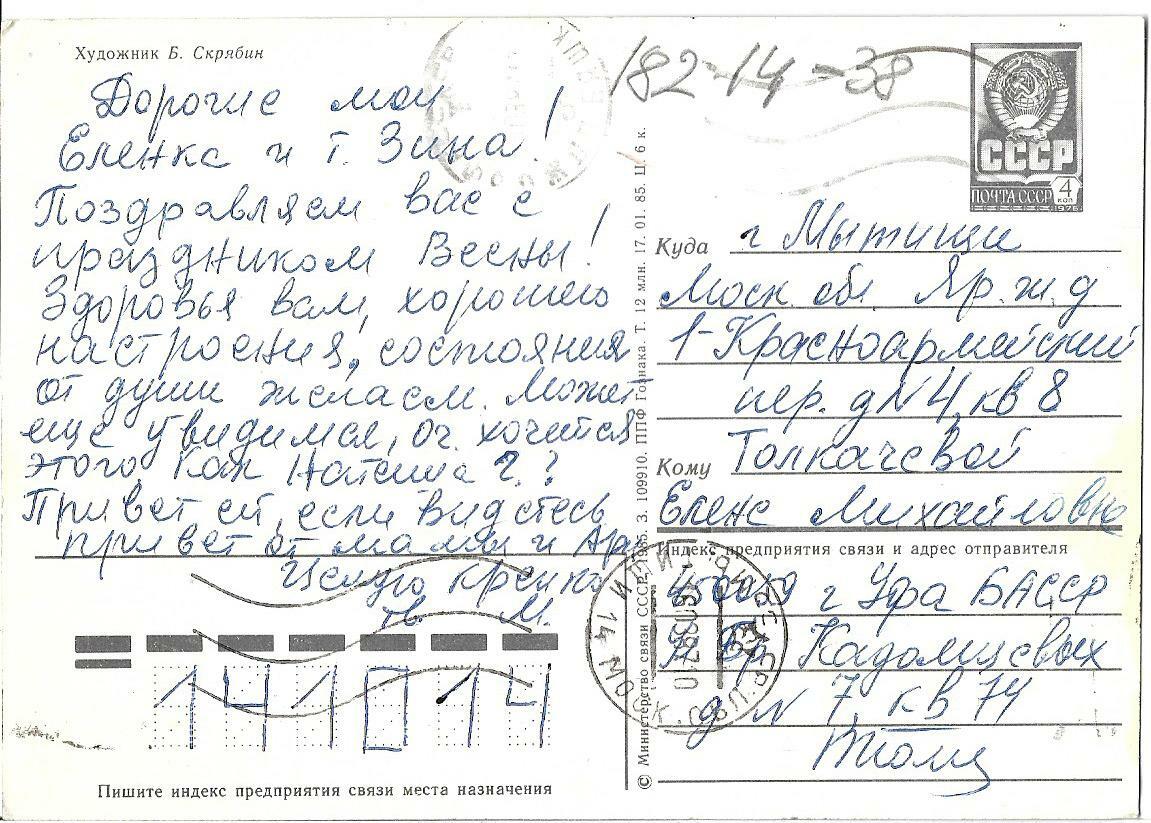 Художник Б. Скрябин
Дорогие мои
Еленка и т. Зина!
Поздравляем вас с
праздником Весны!
Здоровья вам, хорошего
настроения, состояния
от души желаем. Может
еще увидимся, оч. хочется
этого. Как Наташа?.?
Привет ей, если видетесь
привет от мамы и
Целую крепко
М.
Пишите индекс предприятия связи места назначения
141014
© Министерство связи СССР. З. 109910. ППФ Гознака Т. 12 млн. 17. 01. 85. Ц. 6 к.
182-14-38
СССР
ПОЧТА СССР 4 КОП
1976
Куда г Мытищи
Моск обл Яр. ж. д
1-Красноармейский
пер. д N 4, кв 8
Кому Толкачевой
Елене Михайловне
Индекс предприятия связи и адрес отправителя
г Уфа БАССР
Кадомцевых
д N 7, кв 74